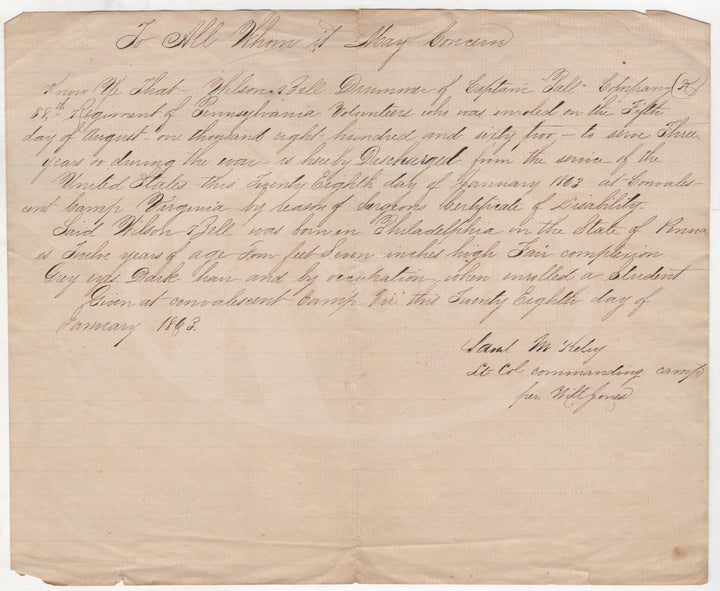 To All Whome it May Concern
Know Ye That - Wilson Bell Drummer of Captain "Pall" Company (K)
88th Regiment of Pennsylvania Volunteers who was enroled on the Fifth
day of August - one thousand eight hundred and sixty - to serve Three
years or during the war is hereby Discharged from the service of the
United States this Twenty Eighth day of January 1863 - at Convales-
cent Camp Virginia by reason of Surgeons Certificate of Disability
Said Wilson Bell was born in Philadelphia in the State of Penna
is Twelve years of age Four feet Seven inches high Fair complexion
Grey eyes. Dark hair and by occupation, when enrolled a Student
Given at convalescent Camp Vir. this Twenty Eighth day of
January 1863.
Saml M Kelsy
Lt Col commanding camp
per Will Jones